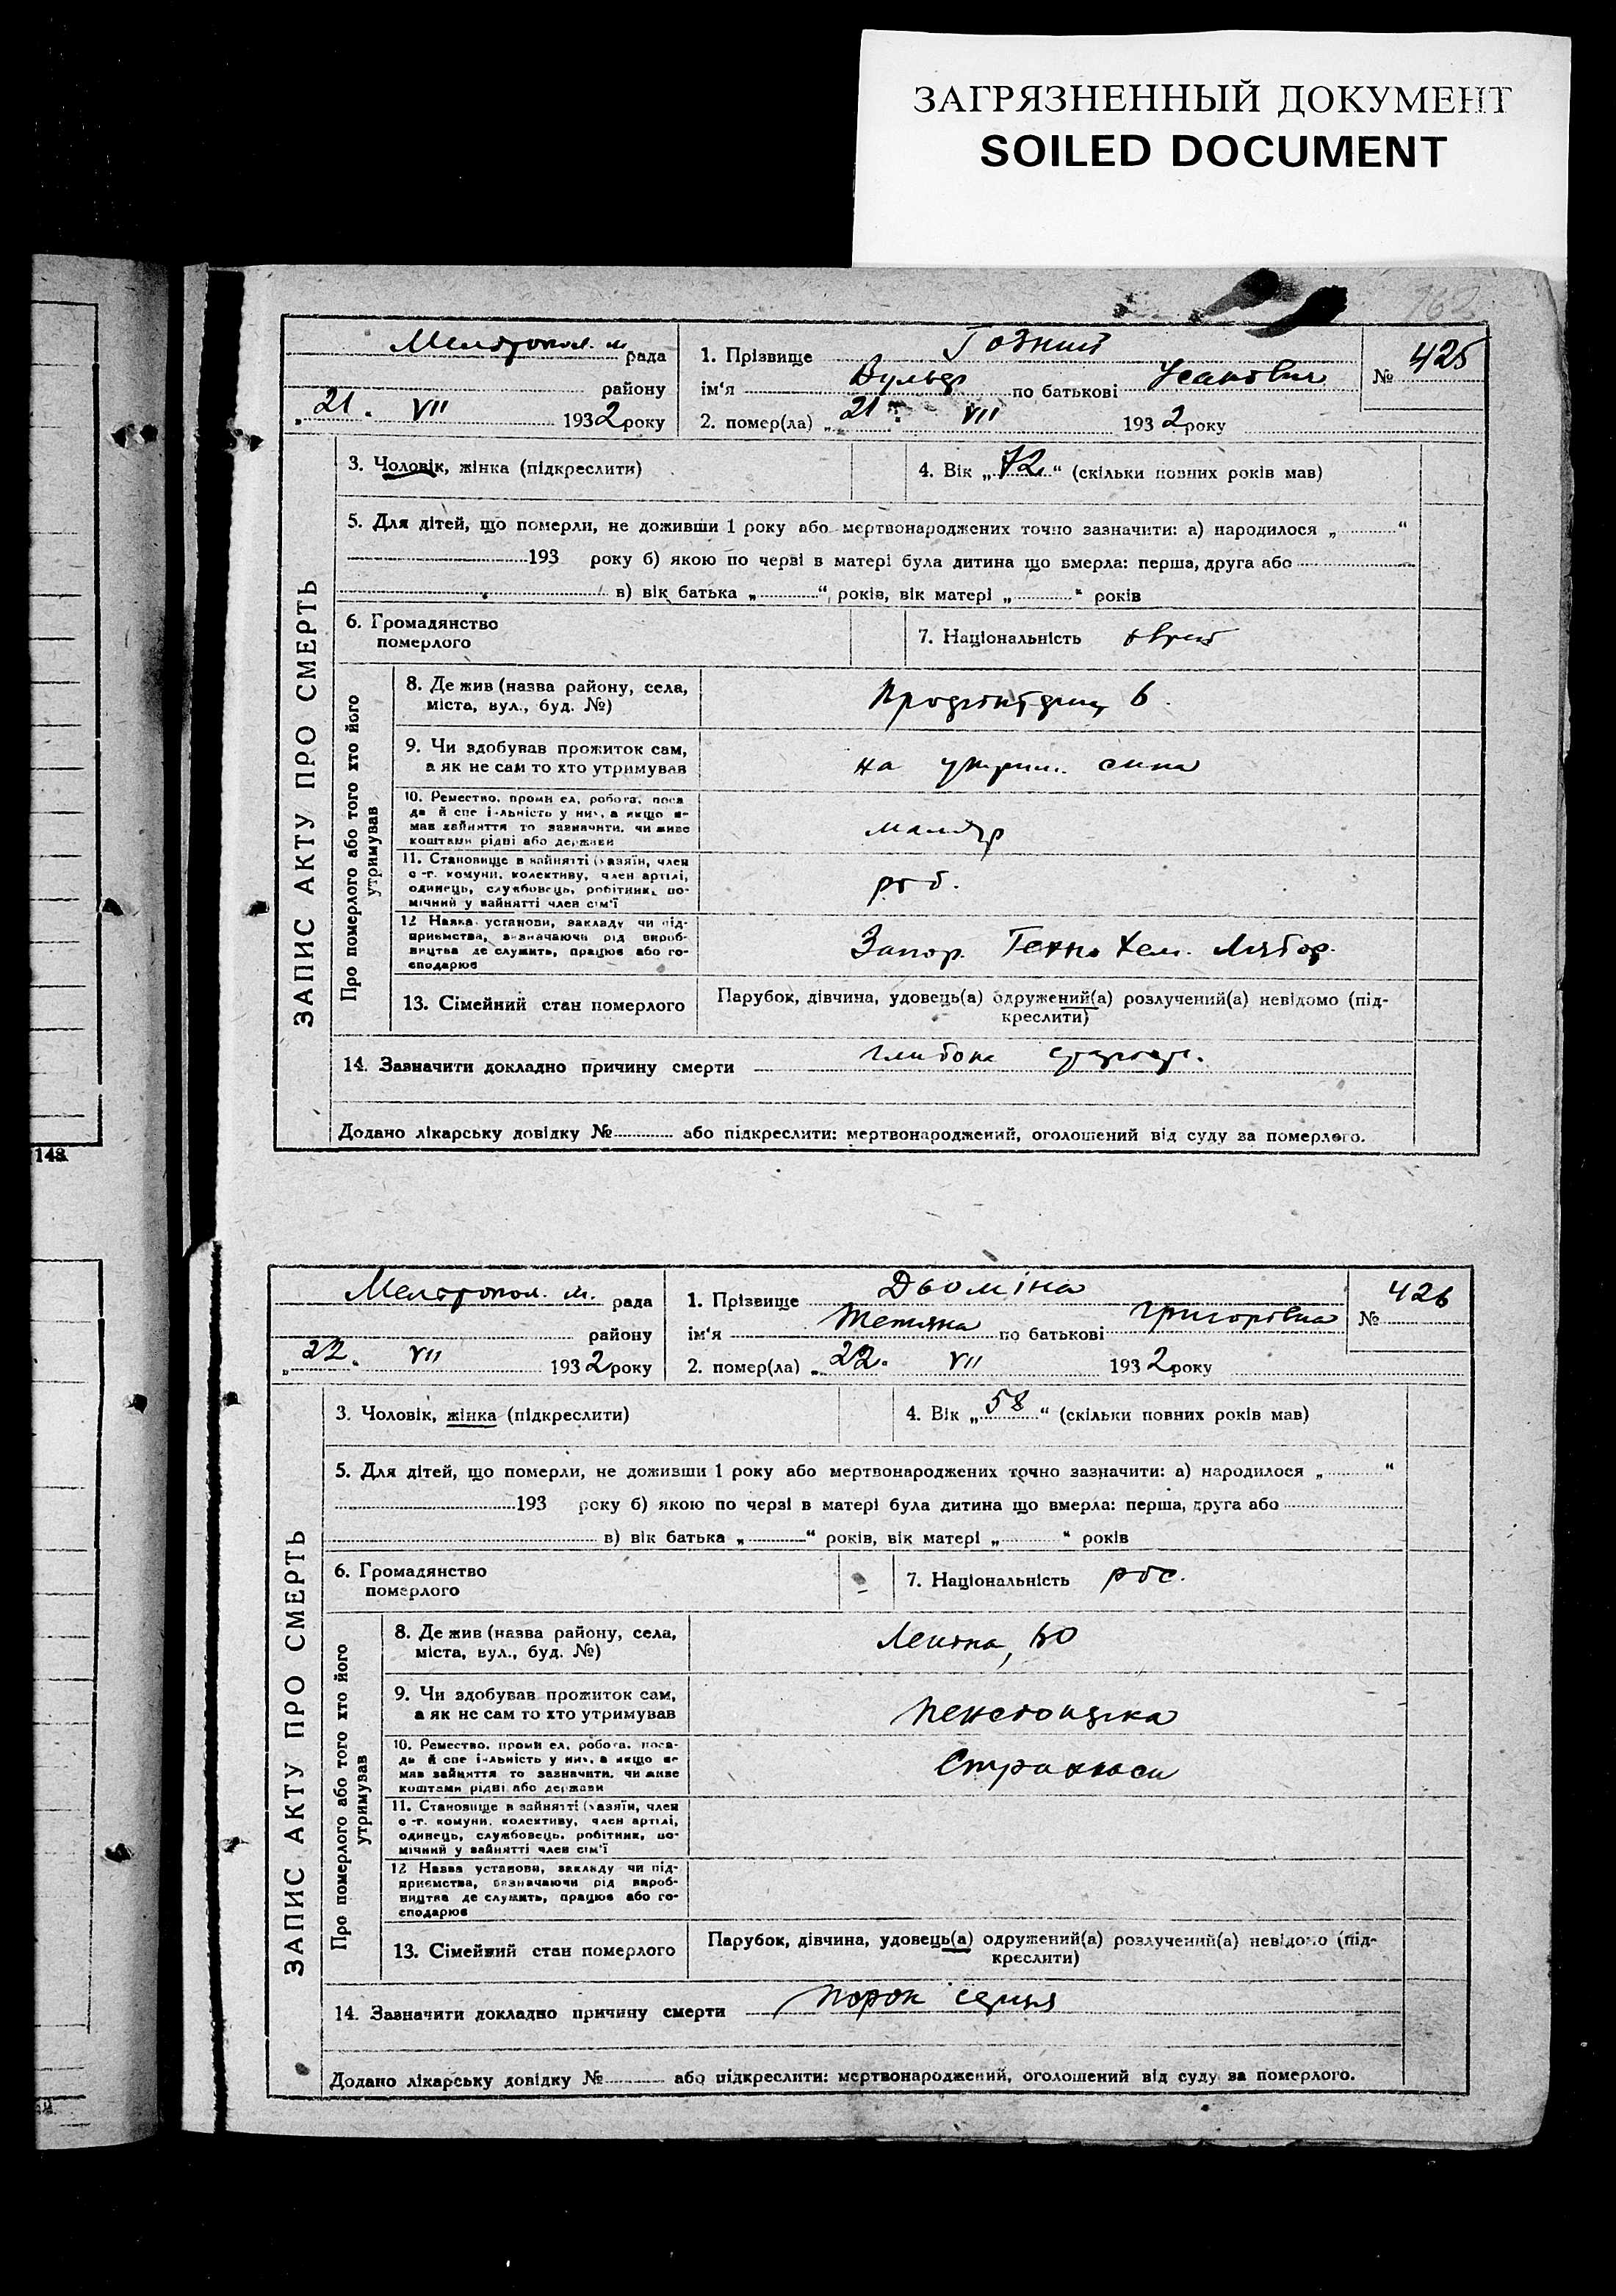 ЗАГРЯЗНЕННЫЙ ДОКУМЕНТ
SOILED DOCUMENT
162
Мелітопол. м. рада
району
„21. VII 1932 року
1. Прізвище
ім‘я Вульф по батькові
2. помер(ла) „21. VII 1932 року
№ 425
ЗАПИС АКТУ ПРО СМЕРТЬ
3. Чоловік, жінка (підкреслити)
4. Вік „72“ (скільки повних років мав)
5. Для дітей, що померли, не доживши 1 року або мертвонароджених точно зазначити: а) народилося „ “
193 року б) якою по черзі в матері була дитина що вмерла: перша, друга або
в) вік батька „ “, років, вік матері „ “ років
6. Громадянство
померлого
7. Національність єврей
Про померлого або того хто його
утримував
8. Де жив (назва району, села,
міста, вул., буд. №)
6.
9. Чи здобував прожиток сам,
а як не сам то хто утримував
на утрим. сина
10. Ремество, промисел, робота, поса
да й спеціяльність у них, а якщо не
мав зайняття то зазначити, чи живе
коштами рідні або держави
маляр
11. Становище в зайнятті (хазяїн, член
с.-г. комуни, колективу, член артілі,
одинець, службовець, робітник, по-
мічний у зайнятті член сім‘ї
роб.
12 Назва установи, закладу чи під-
приємства, визначаючи рід вироб-
ництва де служить, працює або го-
сподарює
Запор.
13. Сімейний стан померлого
Парубок, дівчина, удовець(а) одружений(а) розлучений(а) невідомо (під-
креслити)
14. Зазначити докладно причину смерти глибока
Додано лікарську довідку № або підкреслити: мертвонароджений, оголошений від суду за померлого.
148
Мелітопол. м. рада
району
„22. VII 1932 року
1. Прізвище Дьоміна
ім‘я Тетяна по батькові Григорівна
2. помер(ла) „22. VII 1932 року
№ 426
ЗАПИС АКТУ ПРО СМЕРТЬ
3. Чоловік, жінка (підкреслити)
4. Вік „58“ (скільки повних років мав)
5. Для дітей, що померли, не доживши 1 року або мертвонароджених точно зазначити: а) народилося „ “
193 року б) якою по черзі в матері була дитина що вмерла: перша, друга або
в) вік батька „ “ років, вік матері „ “ років
6. Громадянство
померлого
7. Національність рос.
Про померлого або того хто його
утримував
8. Де жив (назва району, села,
міста, вул., буд. №)
9. Чи здобував прожиток сам,
а як не сам то хто утримував
пенсіонерка
10. Ремество, промисел, робота, поса-
да й спеціяльність у них, а якщо не
мав зайняття то зазначити, чи живе
коштами рідні або держави
Страхкаси
11. Становище в зайнятті (хазяїн, член
с.-г. комуни, колективу, член артілі,
одинець, службовець, робітник, по-
мічний у зайнятті член сім‘ї
12 Назва установи, закладу чи під-
приємства, визначаючи рід вироб-
ництва де служить, працює або го-
сподарює
13. Сімейний стан померлого
Парубок, дівчина, удовець(а) одружений(а) розлучений(а) невідомо (під-
креслити)
14. Зазначити докладно причину смерти порок серця
Додано лікарську довідку № або підкреслити: мертвонароджений, оголошений від суду за померлого.